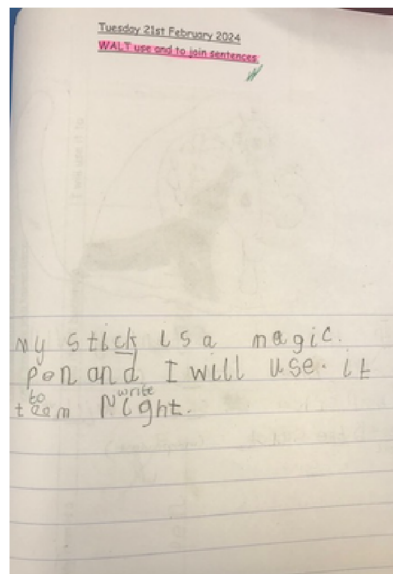 Tuesday 21st February 2024
WALT use and to join sentences
My stick is a magic.
pen and I will use. it
to write
Night.